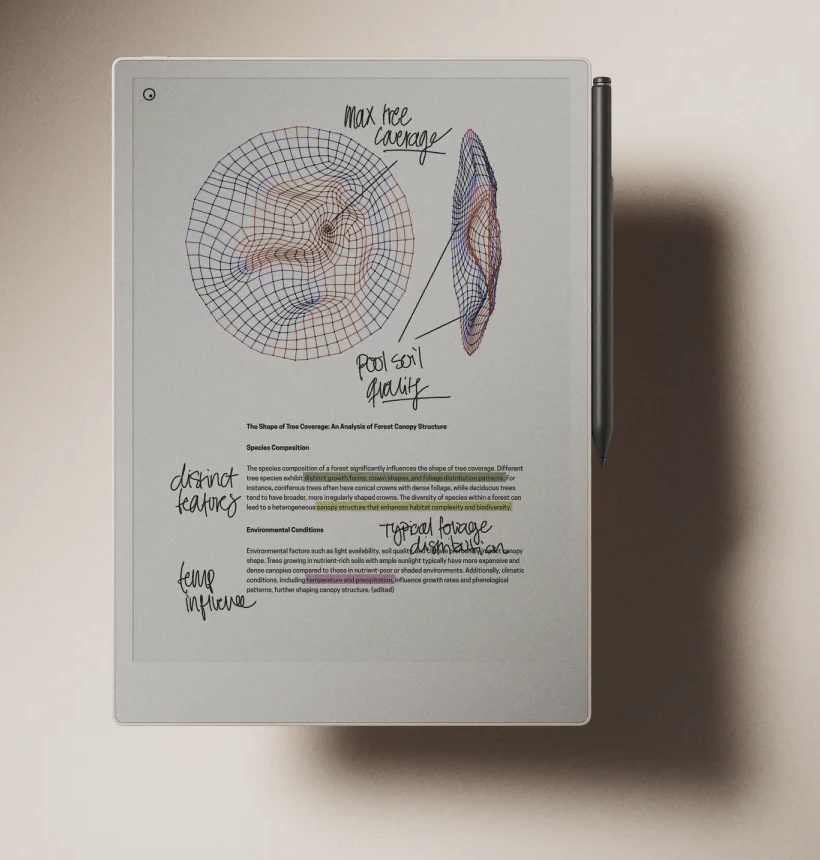 max tree
coverage
pool soil
quality
The Shape of Tree Coverage: An Analysis of Forest Canopy Structure
Species Composition
The species composition of a forest significantly influences the shape of tree coverage. Different
tree species exhibit distinct growth forms, crown shapes, and foliage distribution patterns. For
instance, coniferous trees often have conical crowns with dense foliage, while deciduous trees
tend to have broader, more irregularly shaped crowns. The diversity of species within a forest can
lead to a heterogeneous canopy structure that enhances habitat complexity and biodiversity.
distinct
features
Typical foliage
distribution
Environmental Conditions
Environmental factors such as light availability, soil quality, canopy
shape. Trees growing in nutrient-rich soils with ample sunlight typically have more expansive and
dense canopies compared to those in nutrient-poor or shaded environments. Additionally, climatic
conditions, including temperature and precipitation, influence growth rates and phenological
patterns, further shaping canopy structure. (edited)
temp
influence